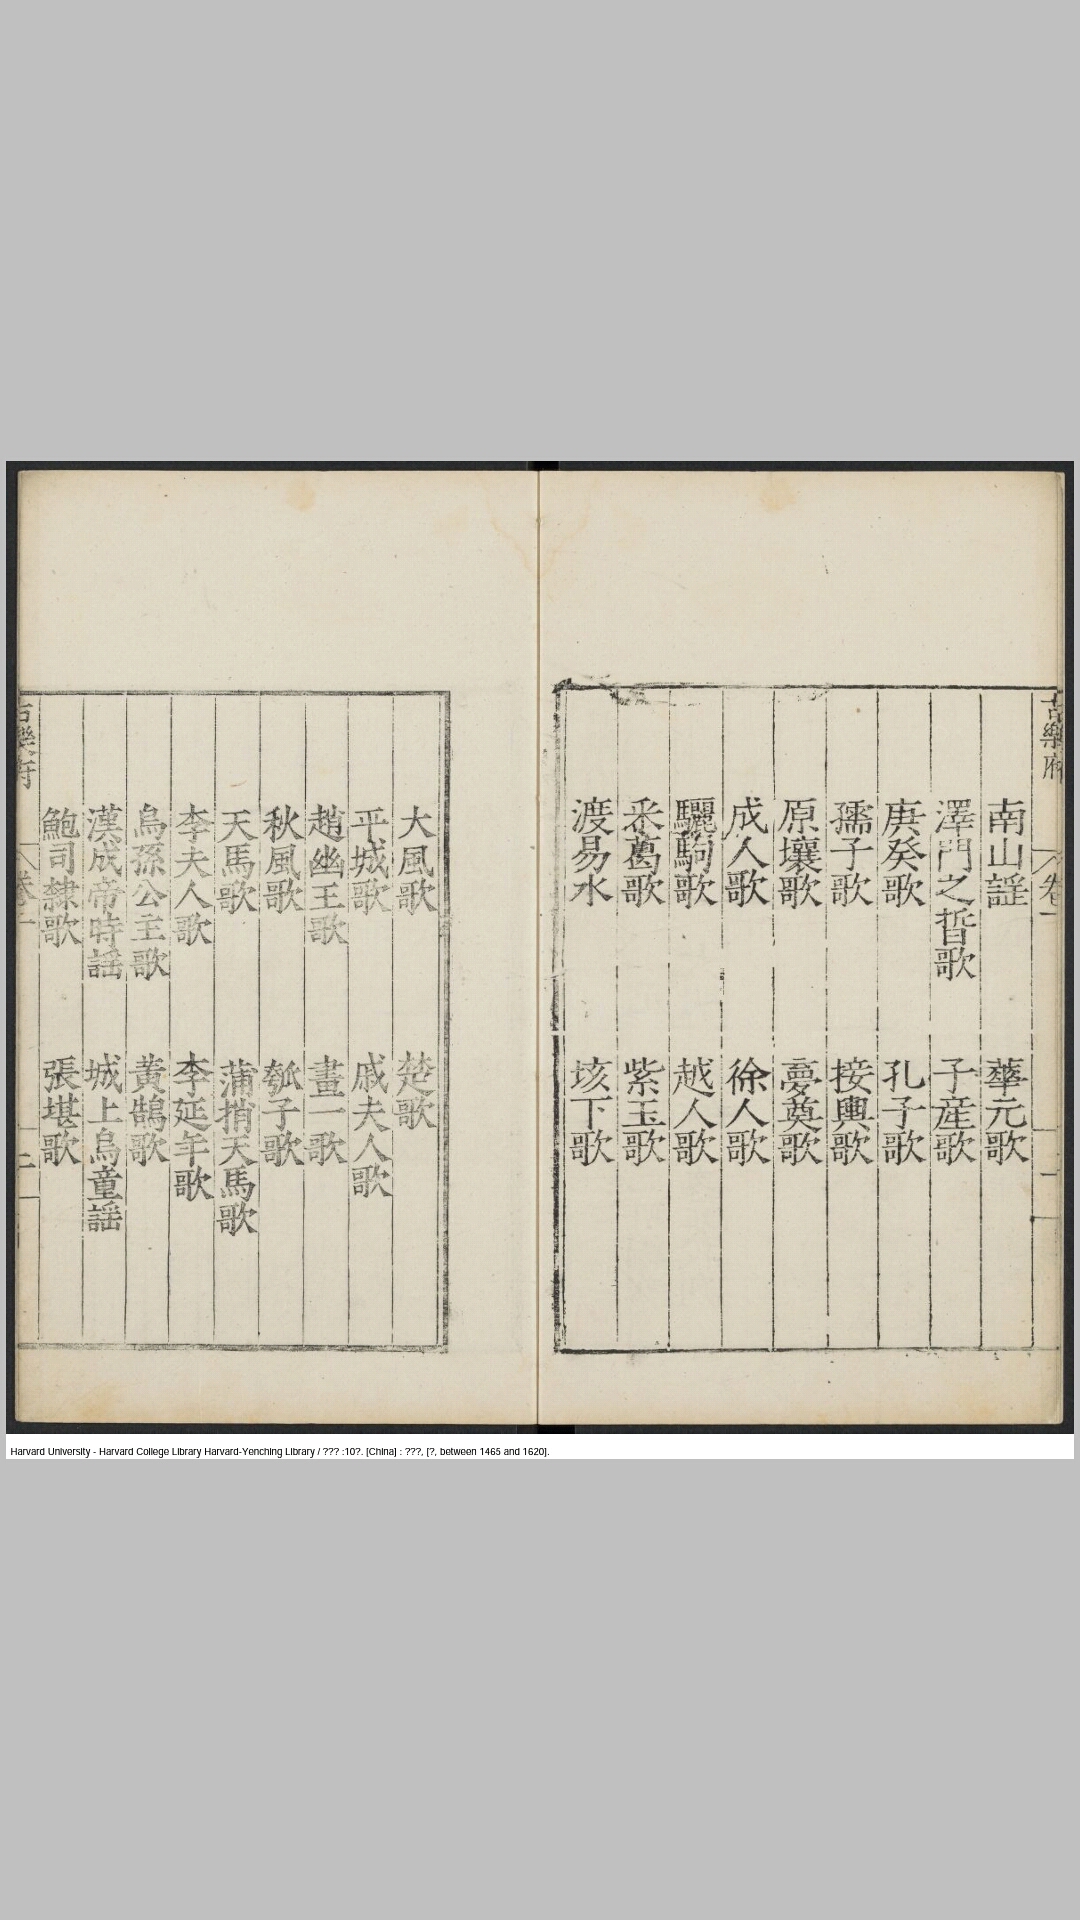 古樂府 卷一 二
南山謡 華元歌
澤門之晳歌 子產歌
庚癸歌 孔子歌
孺子歌 接輿歌
原壤歌 夢奠歌
成人歌 徐人歌
驪駒歌 越人歌
釆葛歌 紫玉歌
渡易水 垓下歌
大風歌 楚歌
平城歌 戚夫人歌
趙幽王歌 畫一歌
秋風歌 瓠子歌
天馬歌 蒲捎天馬歌
李夫人歌 李延年歌
烏孫公主歌 黄鵠歌
漢成帝時謡 城上烏童謡
鮑司隸歌 張堪歌
古樂府 卷一
Harvard University - Harvard College Library Harvard-Yenching Library / ??? :10?. [China] : ???, [?, between 1465 and 1620].